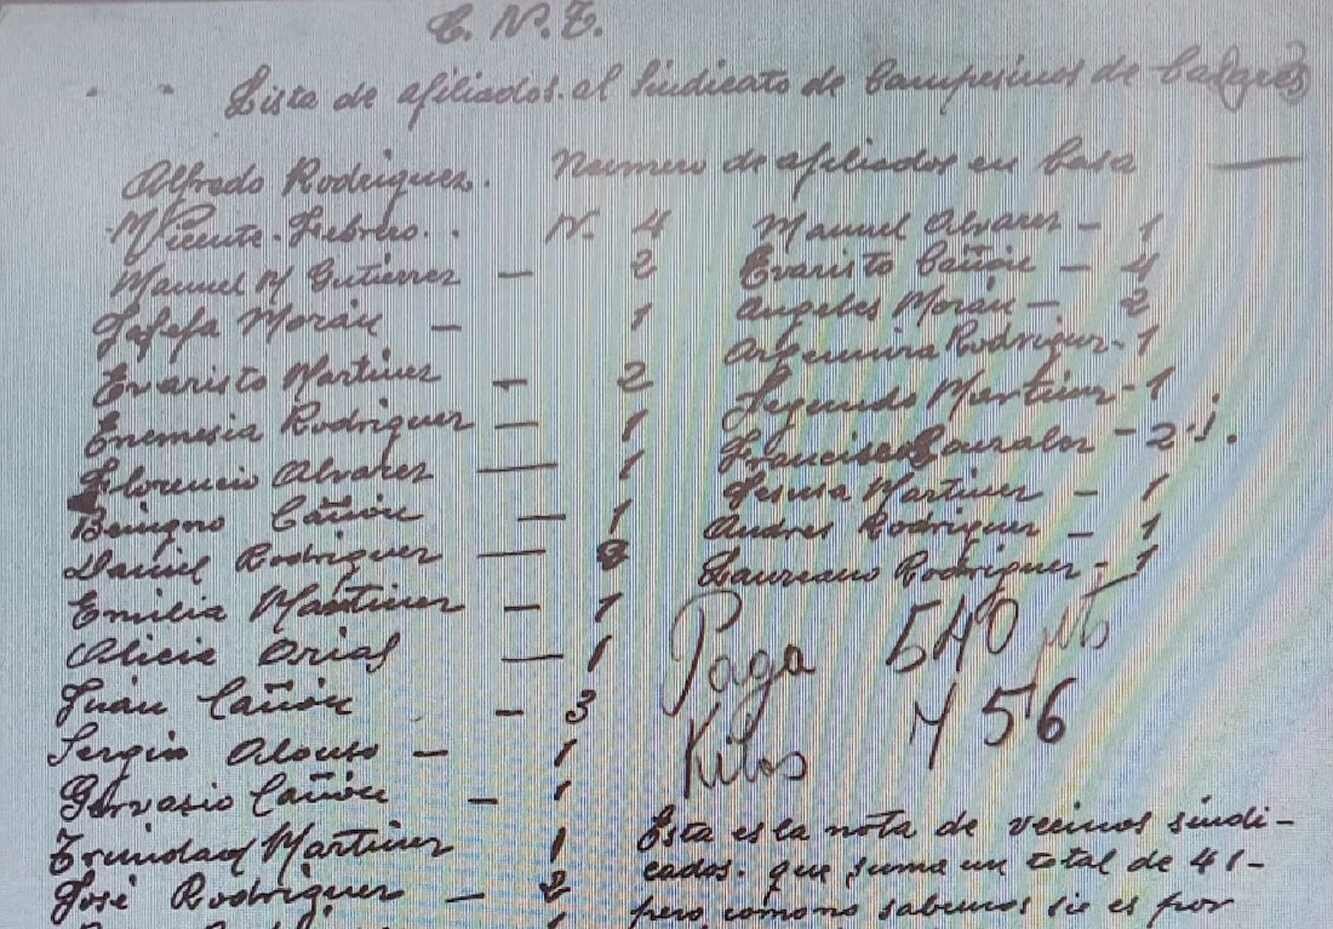 C. N. T.
Lista de afiliados. al Sindicato de Campesinos de
Alfredo Rodriguez. Numero de afiliados en Casa —
Vicente. Febrero.. N. 4
Manuel M Gutierrez — 2
Josefa Morán — 1
Evaristo Martinez — 2
Enemesia Rodriguez — 1
Florencio Alvarez — 1
Benigno Cañón — 1
Daniel Rodriguez —
Emilia Martinez — 1
Alicia Arias — 1
Juan Cañón — 3
Sergio Alonso — 1
Gervasio Cañón — 1
Trinidad Martinez 1
José Rodriguez — 2
Manuel Alvarez — 1
Evaristo Cañón — 4
Angeles Morán — 2
Argemira Rodriguez - 1
Segundo Martinez - 1
Francisco Gonzalez - 2
Martinez - 1
Andres Rodriguez - 1
Laureano Rodriguez - 1
Paga 540
Kilos 456
Esta es la nota de vecinos sindi-
cados. que suma un total de 41-
pero como no sabemos si es por